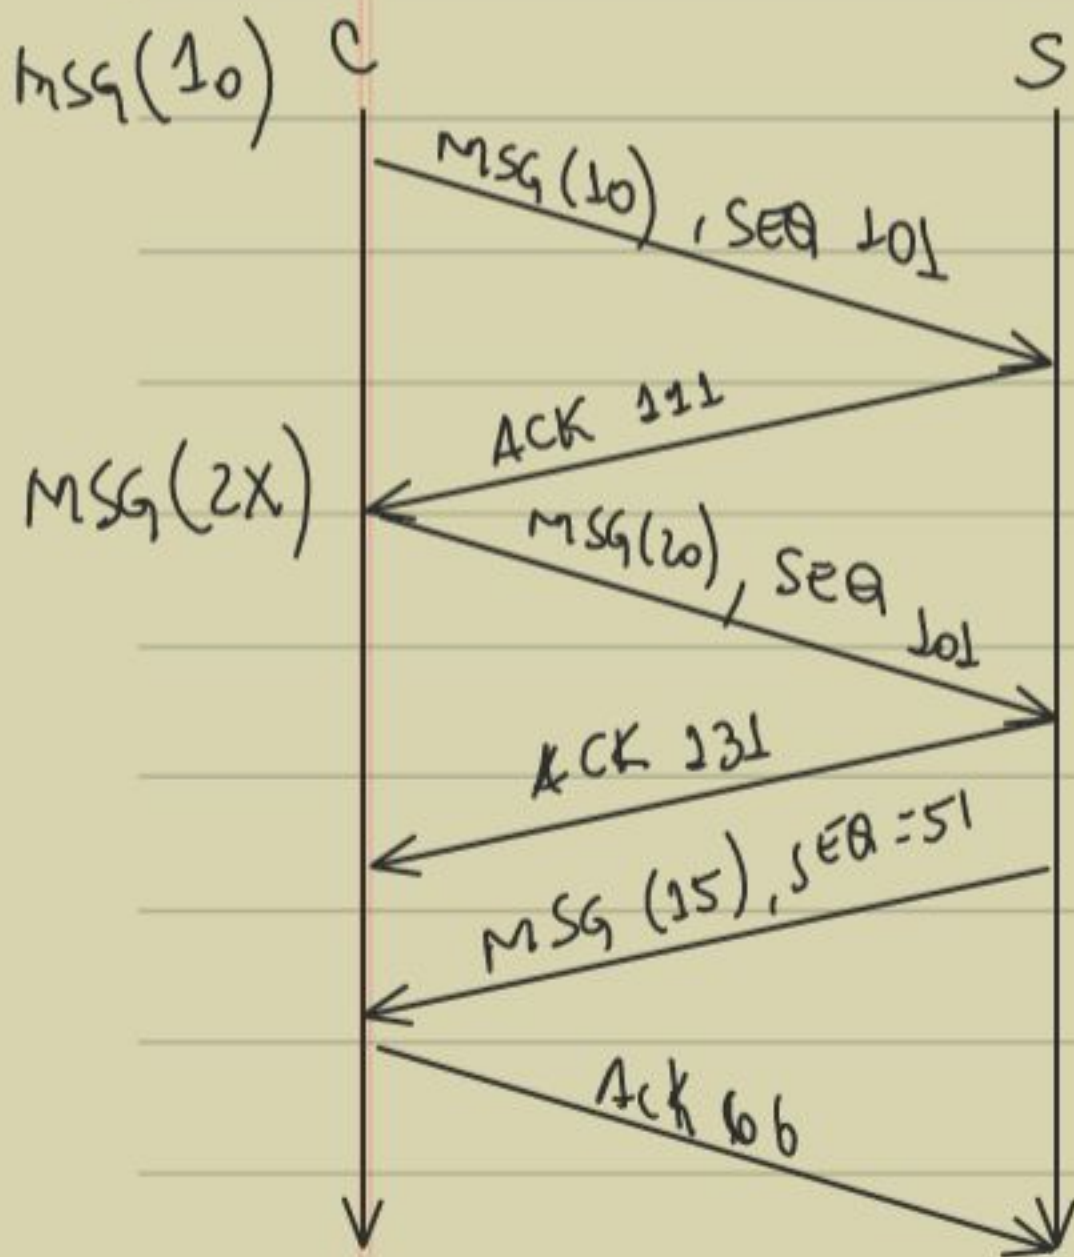 MSG(10) C S
MSG(10), SEQ 101
ACK 111
MSG(2X)
MSG(20), SEQ 101
ACK 131
MSG (15), SEQ=51
Ack 66